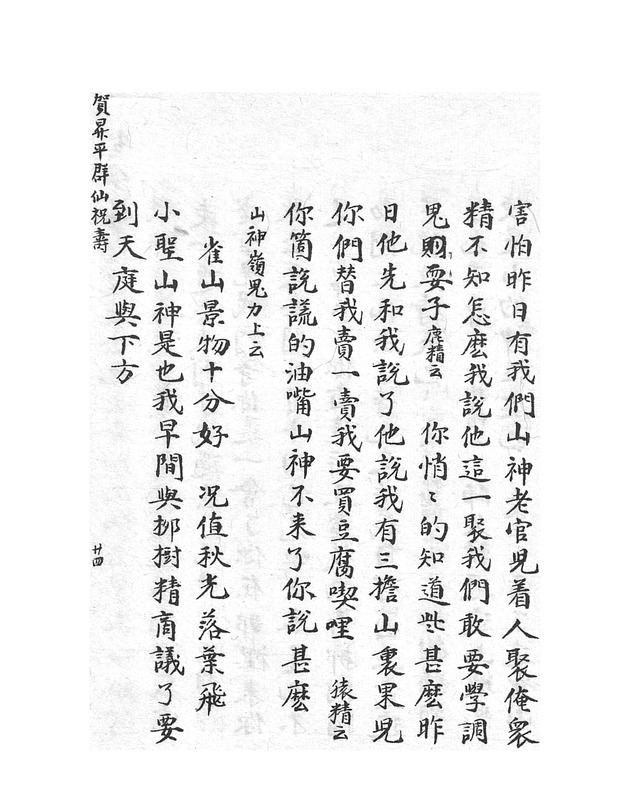 害怕昨日有我們山神老官児着人聚俺衆
精不知怎麽我説他這一聚我們敢要學調
鬼耍子鹿精云 你悄〻的知道些甚麽昨
日他先和我説了他説我有三擔山裏果児
你們替我賣一賣我要買豆腐喫哩 猿精云
你箇説謊的油嘴山神不来了你説甚麽
山神嶺鬼力上云
雀山景物十分好 况值秋光落葉飛
小聖山神是也我早間與柳樹精商議了要
到天庭與下方
賀昇平群仙祝壽
廿四